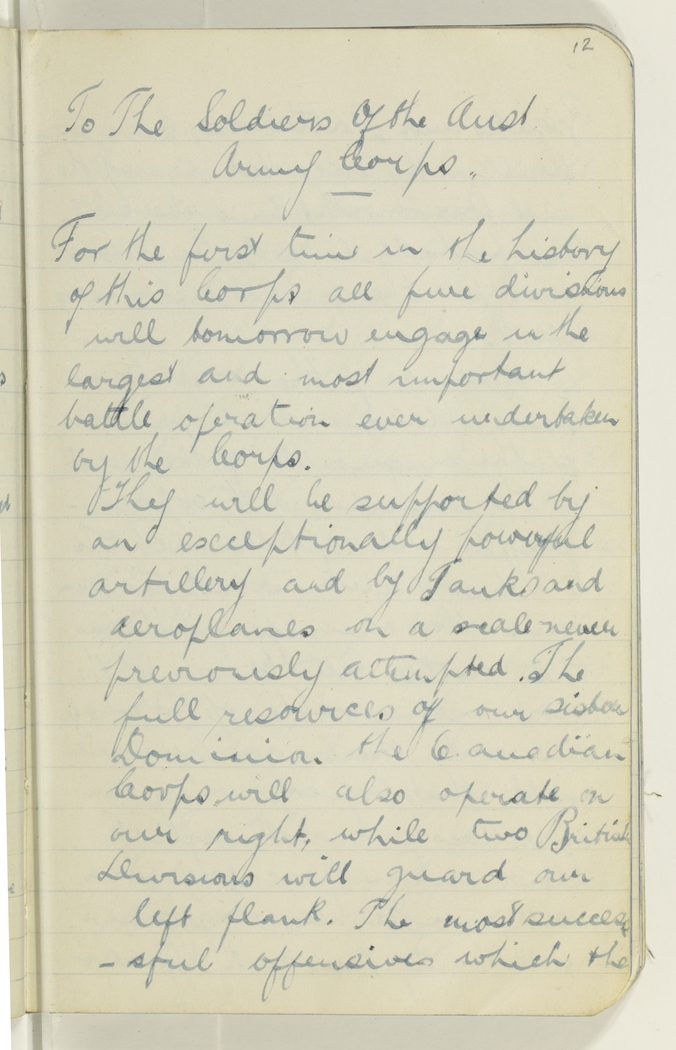 12
To The Soldiers Of the Aust
Army Corps.,
For the first time in the history
of this Corps all five divisions
will tomorrow engage in the
largest and most important
battle operation ever undertaken
by the Corps.
They will be supported by
an exceptionally powerful
artillery and by Tanks and
aeroplanes on a scale never
previously attempted. The
full resources of our sister
Dominion the Canadian
Corps, will also operate on
our right, while two British
Divisions will guard our
left flank. The most succes
-sful offensives which the